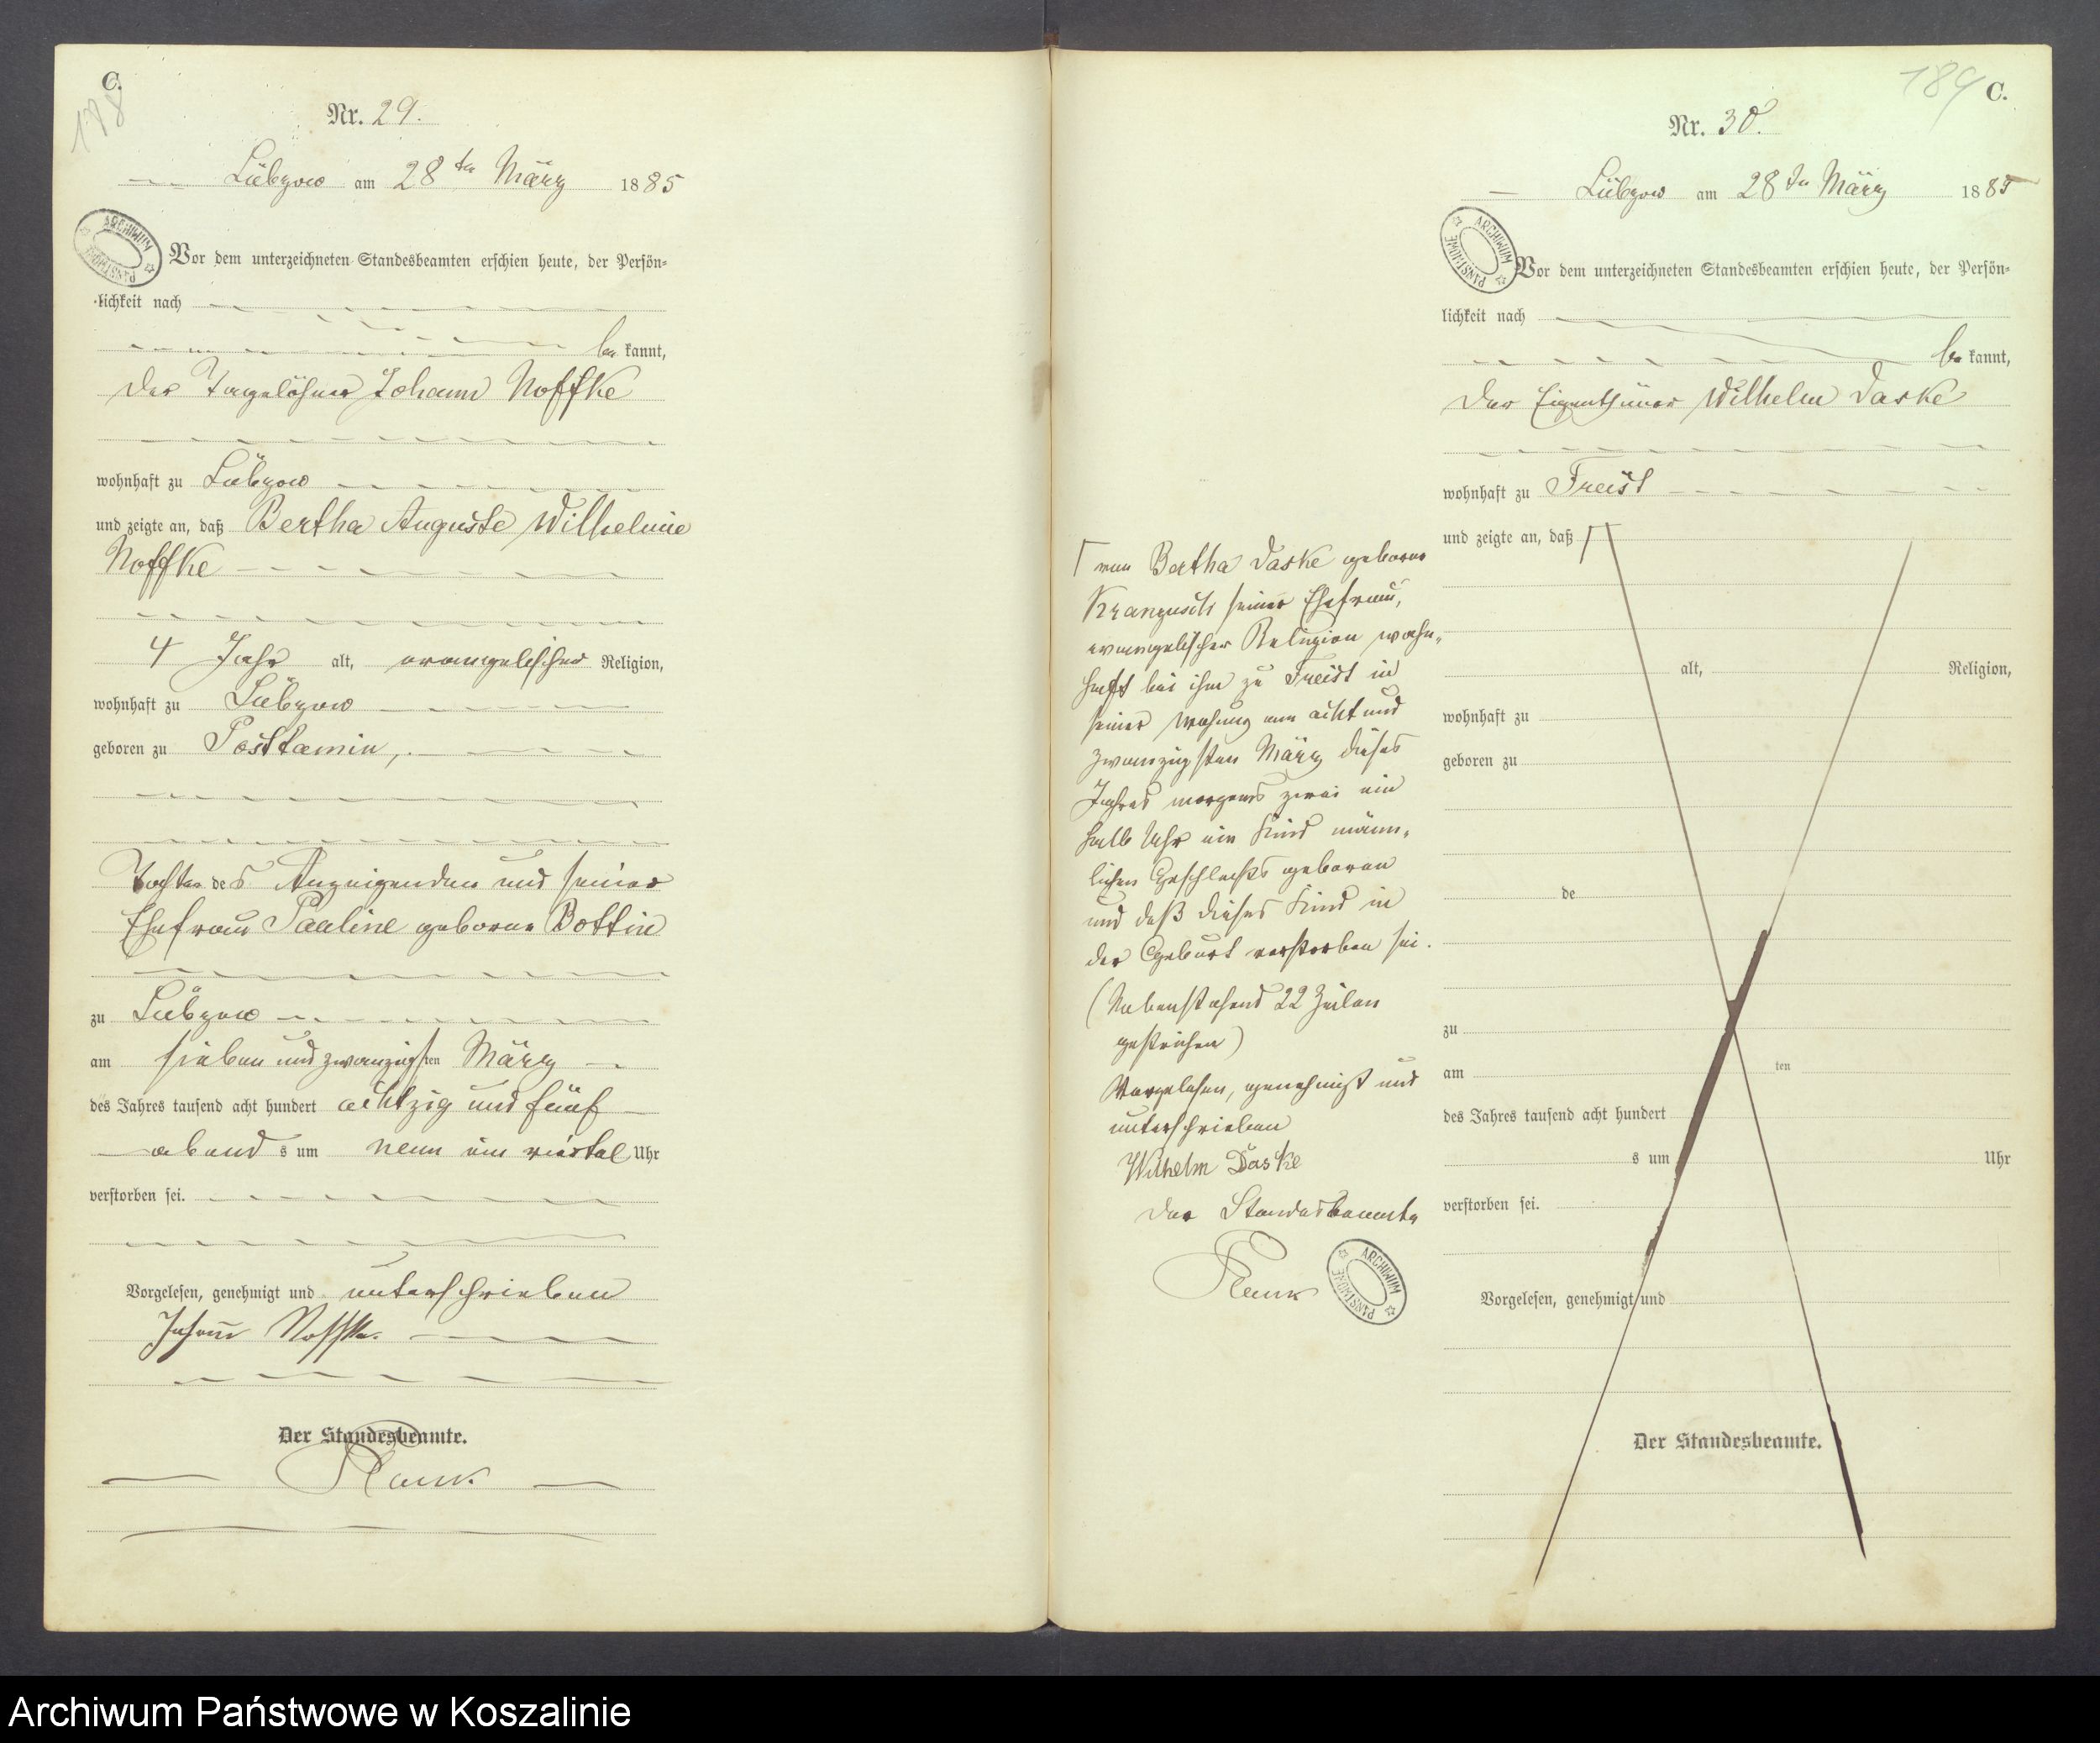 C.
188
Nr. 29.
Lübzow am 28ten März 1885
ARCHIWUM PAŃSTWOWE
Vor dem unterzeichneten Standesbeamten erschien heute, der Persön=
lichkeit nach
be kannt,
der Tagelöhner Johann Noffke
wohnhaft zu Lübzow
und zeigte an, daß Bertha Auguste Wilhelmine
Noffke
4 Jahr alt, evangelischer Religion,
wohnhaft zu Lübzow
geboren zu Posttamin,
Tochter des Anzeigenden und seiner
Ehefrau Pauline geborne Bottin
zu Lübzow
am sieben und zwanzigsten März
des Jahres tausend acht hundert achtzig und fünf
abends um neun ein viertel Uhr
verstorben sei.
Vorgelesen, genehmigt und unterschrieben
Johann Noffke.
Der Standesbeamte.
189
C.
Nr. 30.
Lübzow am 28ten März 1885
ARCHIWUM PAŃSTWOWE
Vor dem unterzeichneten Standesbeamten erschien heute, der Persön=
lichkeit nach
be kannt,
der Eigenthümer Wilhelm Daske
wohnhaft zu Freist
und zeigte an, daß
von Bertha Daske geborne
Krangusch seiner Ehefrau,
evangelischer Religion wohn=
haft bei ihm zu Freist in
seiner Wohnung am acht und
zwanzigsten März dieses
Jahres morgens zwei ein
halb Uhr ein Kind männ=
lichen Geschlechts geboren
und daß dieses Kind in
der Geburt verstorben sei.
(Nebenstehend 22 Zeilen
gestrichen)
Vorgelesen, genehmigt und
unterschrieben
Wilhelm Daske
Der Standesbeamte
ARCHIWUM PAŃSTWOWE
alt, Religion,
wohnhaft zu
geboren zu
de
zu
am ten
des Jahres tausend acht hundert
s um Uhr
verstorben sei.
Vorgelesen, genehmigt und
Der Standesbeamte.
Archiwum Państwowe w Koszalinie